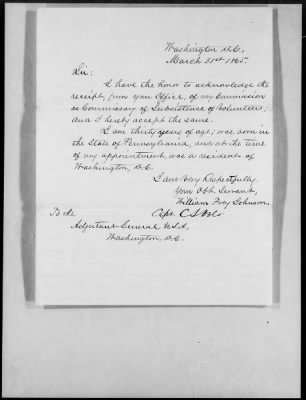 Washington D.C,
March 31st 1865.
Sir:
I have the honor to acknowledge the
receipt, from your Office, of my Commission
as Commissary of Subsistence of Volunteers;
and I hereby accept the same.
I am thirty years of age; was born in
the State of Pennsylvania, and at the time
of my appointment, was a resident of
Washington, D.C.
I am Very Respectfully,
Your Obt. Servant,
William Johnson.
Capt. C.S. Vols.
To the
Adjutant General U.S.A.
Washington, D.C.